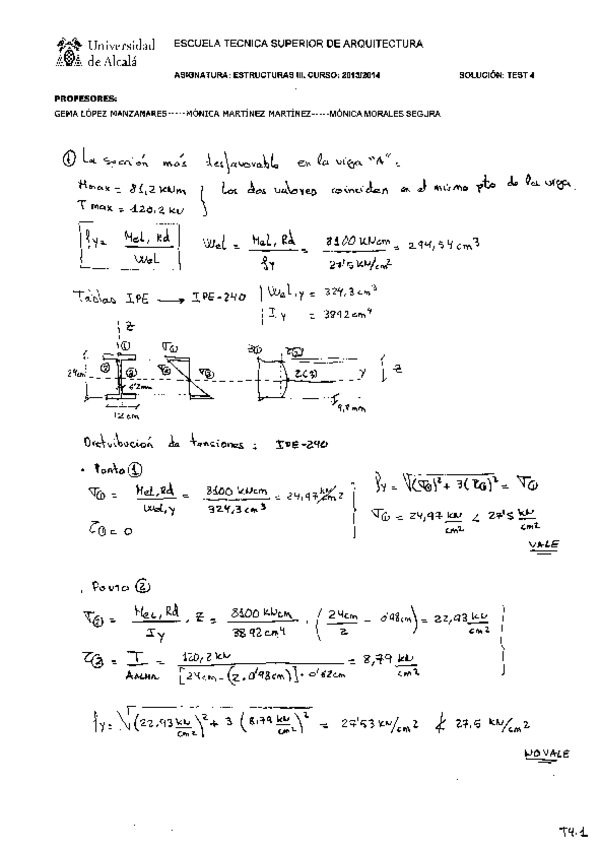 Universidad
de Alcalá
ESCUELA TECNICA SUPERIOR DE ARQUITECTURA
ASIGNATURA: ESTRUCTURAS III. CURSO: 2013/2014 SOLUCIÓN: TEST 4
PROFESORES:
GEMA LÓPEZ MANZANARES-----MÓNICA MARTÍNEZ MARTÍNEZ-----MÓNICA MORALES SEGURA
① La sección más desfavorable en la viga "A":
Mmax = 81,2 kNm
Tmax = 120,2 kN
Los dos valores coinciden en el mismo pto de la viga.
fy = Mel,Rd / Wel
Wel = Mel,Rd / fy = 8100 kNcm / 27'5 kN/cm² = 294,54 cm³
Tablas IPE → IPE-240 | Wel,y = 324,3 cm³
Iy = 3892 cm⁴
z
24cm ① ② ③ 6'2mm σ① σ② σ③ τ① τ② τ(3) y z
12 cm 9,8 mm
Distribución de tensiones: IPE-240
· Punto ①
σ① = Mel,Rd / Wel,y = 8100 kNcm / 324,3 cm³ = 24,97 kN/cm²
τ① = 0
fy = √((σ①)² + 3(τ①)²) = σ①
σ① = 24,97 kN/cm² < 27'5 kN/cm²
VALE
. Punto ②
σ② = Mel,Rd / Iy · z = 8100 kNcm / 3892 cm⁴ · (24cm / 2 - 0'98cm) = 22,93 kN/cm²
τ② = T / AALMA = 120,2 kN / [24cm - (2·0'98cm)]·0'62cm = 8,79 kN/cm²
fy = √((22,93 kN/cm²)² + 3 (8,79 kN/cm²)²) = 27'53 kN/cm² ≮ 27,5 kN/cm²
NO VALE
T4.1